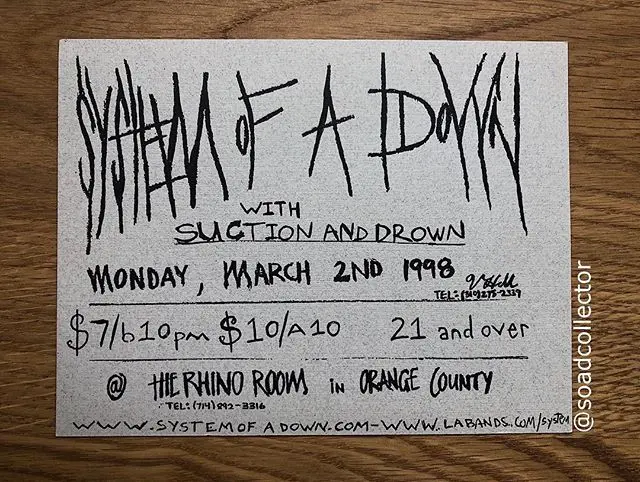 SYSTEM OF A DOWN
WITH
SUCTION AND DROWN
MONDAY, MARCH 2ND 1998
$7/b10pm $10/A10 21 and over
@ THE RHINO ROOM in ORANGE COUNTY
TEL: (714) 892-3316
WWW.SYSTEMOFADOWN.COM-WWW.LABANDS.COM/system
@soadcollector